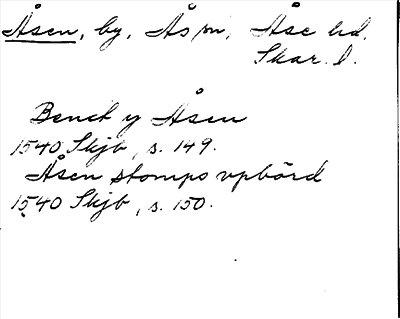 Åsen, by, Ås sn, Åse hd.
Skar. l.
Benct y Åsen
1540 Skjb, s. 149.
Åsen stomps vpbörd
1540 Skjb, s. 150.